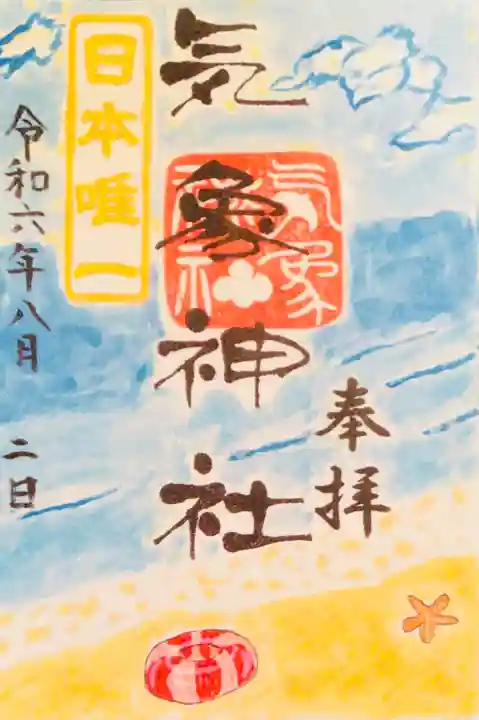 奉拝
気象神社
気象
神社
日本唯一
令和六年八月二日